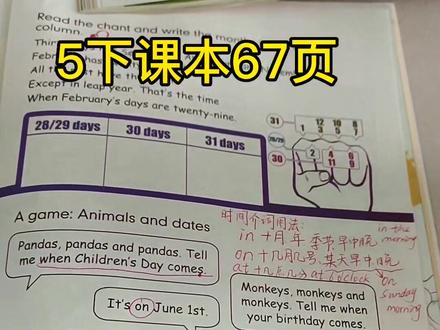 Read the chant and write the
column.
5下课本67页
Except in leap year. That's the time
When February's days are twenty-nine.
28/29 days 30 days 31 days
31 12 10 8
1 3 5 7
28/29
30 2 4 6
11 9
A game: Animals and dates
时间介词用法:
in 十月年 季节早中晚 in the morning
on 十几月几号, 某天早中晚
at 十几点几分 at 6 o'clock
on Sunday morning
Pandas, pandas and pandas. Tell
me when Children's Day comes.
It's on June 1st.
Monkeys, monkeys and
monkeys. Tell me when
your birthday comes.